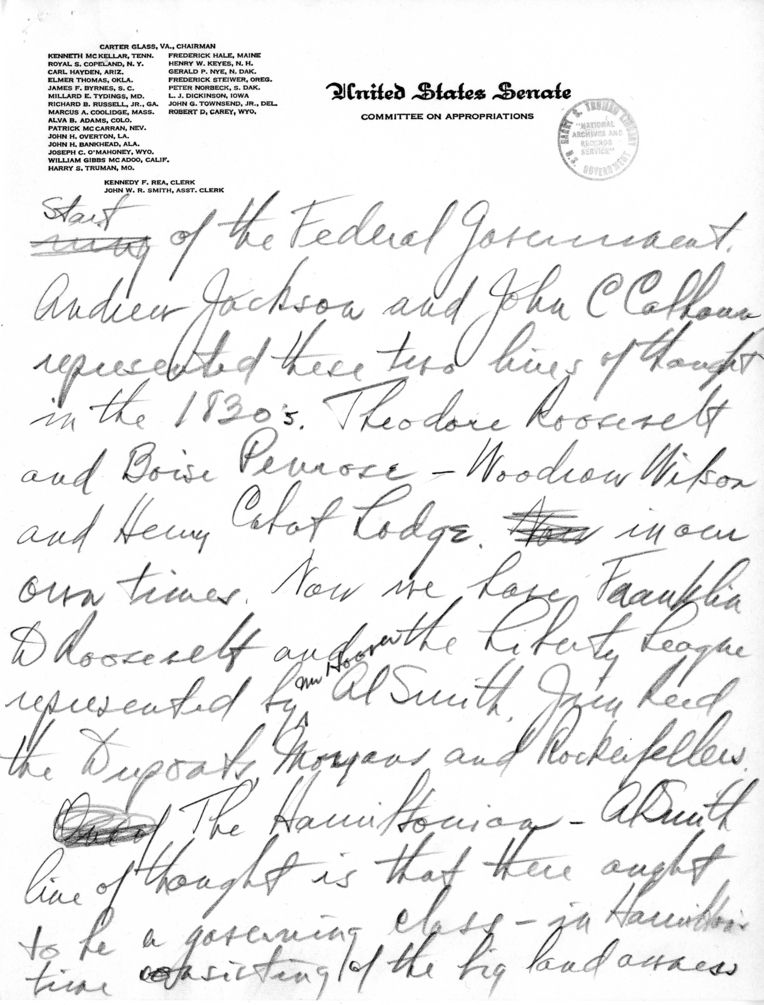 CARTER GLASS, VA., CHAIRMAN
KENNETH McKELLAR, TENN. FREDERICK HALE, MAINE
ROYAL S. COPELAND, N. Y. HENRY W. KEYES, N. H.
CARL HAYDEN, ARIZ. GERALD P. NYE, N. DAK.
ELMER THOMAS, OKLA. FREDERICK STEIWER, OREG.
JAMES F. BYRNES, S. C. PETER NORBECK, S. DAK.
MILLARD E. TYDINGS, MD. L. J. DICKINSON, IOWA
RICHARD B. RUSSELL, JR., GA. JOHN G. TOWNSEND, JR., DEL.
MARCUS A. COOLIDGE, MASS. ROBERT D, CAREY, WYO.
ALVA B. ADAMS, COLO.
PATRICK McCARRAN, NEV.
JOHN H. OVERTON, LA.
JOHN H. BANKHEAD, ALA.
JOSEPH C. O'MAHONEY, WYO.
WILLIAM GIBBS McADOO, CALIF.
HARRY S. TRUMAN, MO.
KENNEDY F. REA, CLERK
JOHN W. R. SMITH, ASST. CLERK
United States Senate
COMMITTEE ON APPROPRIATIONS
HARRY S. TRUMAN LIBRARY
"NATIONAL
ARCHIVES AND
RECORDS
SERVICE"
U.S. GOVERNMENT
Start
of the Federal Government.
Andrew Jackson and John C Calhoun
represented these two lines of thought
in the 1830's. Theodore Roosevelt
and Boise Penrose – Woodrow Wilson
and Henry Cabot Lodge. in our
own times. Now we have Franklin
D Roosevelt and the Liberty League
represented by Mr Hoover Al Smith, Jim Reed
the Duponts, Morgans and Rockefellers.
The Hamiltonian – Al Smith
line of thought is that there ought
to be a governing class – in Hamilton's
time consisting of the big land owners